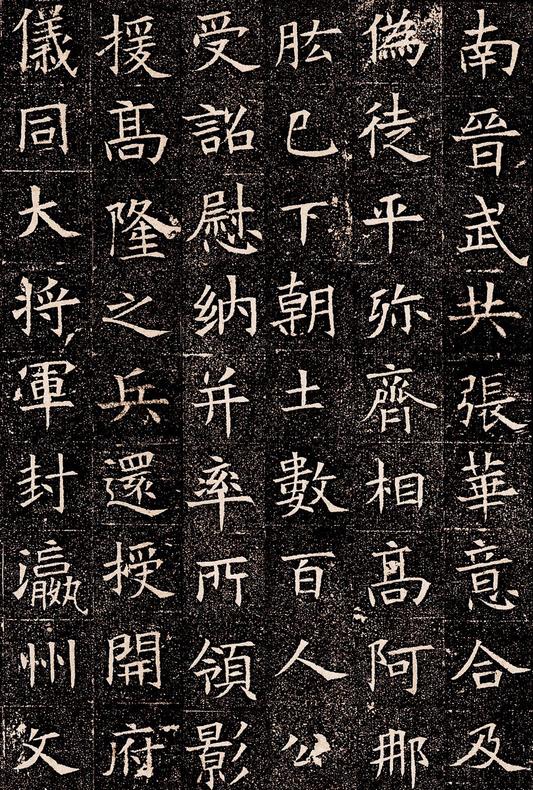 南晉武共張華意合及
偽徒平弥齊相髙阿那
肱已下朝士數百人公
受詔慰纳并率所領影
援髙隆之兵還授開府
儀同大将軍封瀛州文